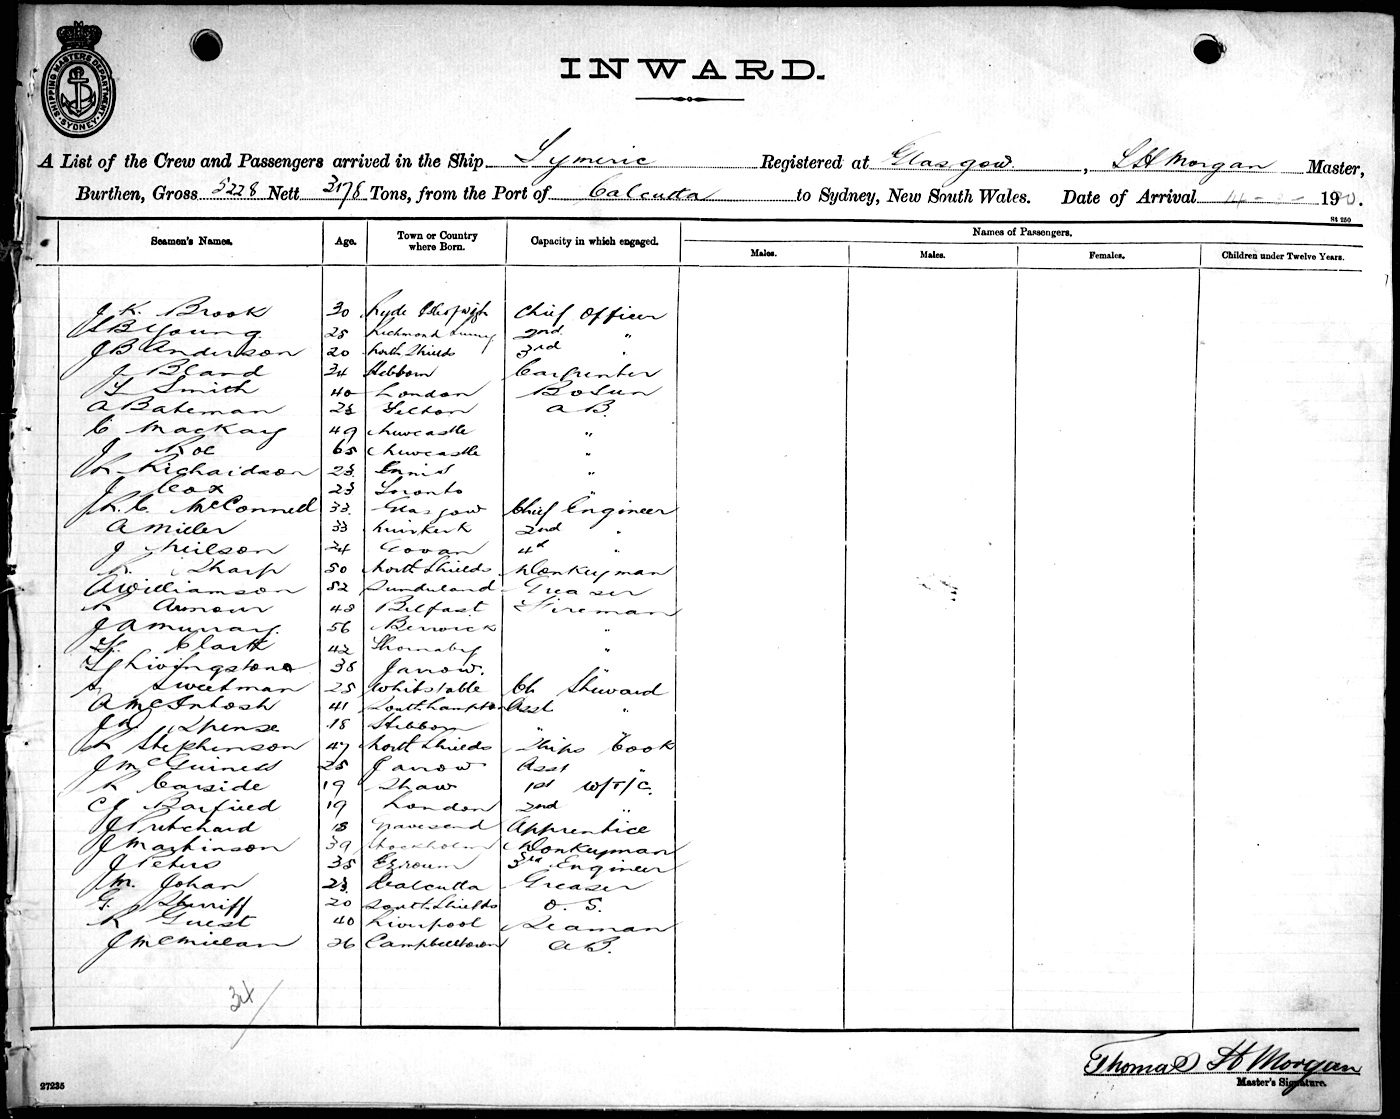 SHIPPING MASTERS DEPARTMENT SYDNEY
INWARD.
A List of the Crew and Passengers arrived in the Ship Lymeric Registered at Glasgow. , T H Morgan Master,
Burthen, Gross 5228 Nett 3178 Tons, from the Port of Calcutta to Sydney, New South Wales. Date of Arrival 19
St 250
Seamen's Names. Age. Town or Country where Born. Capacity in which engaged. Names of Passengers.
Males. Males. Females. Children under Twelve Years.
J K. Brook 30 Ryde Isle of Wight Chief Officer
Young 25 Richmond Surrey 2nd "
J B Anderson 20 North Shields 3rd "
J Bland 34 Hebburn Carpenter
Smith 40 London Bosun
A Bateman 28 A B.
C Mackay 49 Newcastle "
J Roe 65 Newcastle "
R Richardson 23 Ennis "
J Cox 23 Toronto "
J R. C. McConnell 33 Glasgow Chief Engineer
A Miller 33 2nd "
J Neilson 24 Govan 4th "
R Sharp 50 North Shields Donkeyman
A Williamson 52 Sunderland Greaser
R Armour 48 Belfast Fireman
J A Murray 56 Berwick "
Clark 42 Thornaby "
Livingstone 38 Jarrow. "
Sweetman 25 Whitstable Ch Steward
A McIntosh 41 Southampton Asst "
Spense 18 Hebburn "
R Stephenson 47 North Shields Ships Cook
J McGuiness 25 Jarrow Asst "
R Carside 19 Shaw 1st W/T/C.
C J Barfield 19 London 2nd "
J Pritchard 18 Gravesend Apprentice
J Martinson 39 Stockholm Donkeyman
J Peters 38 Ezroum 3rd Engineer
J M. Johan 23 Calcutta Greaser
G. Sherriff 20 South Shields O. S.
R Guest 40 Liverpool Seaman
J McMillan 26 Campbelltown A B.
34/
Thomas H Morgan
Master's Signature.
27235